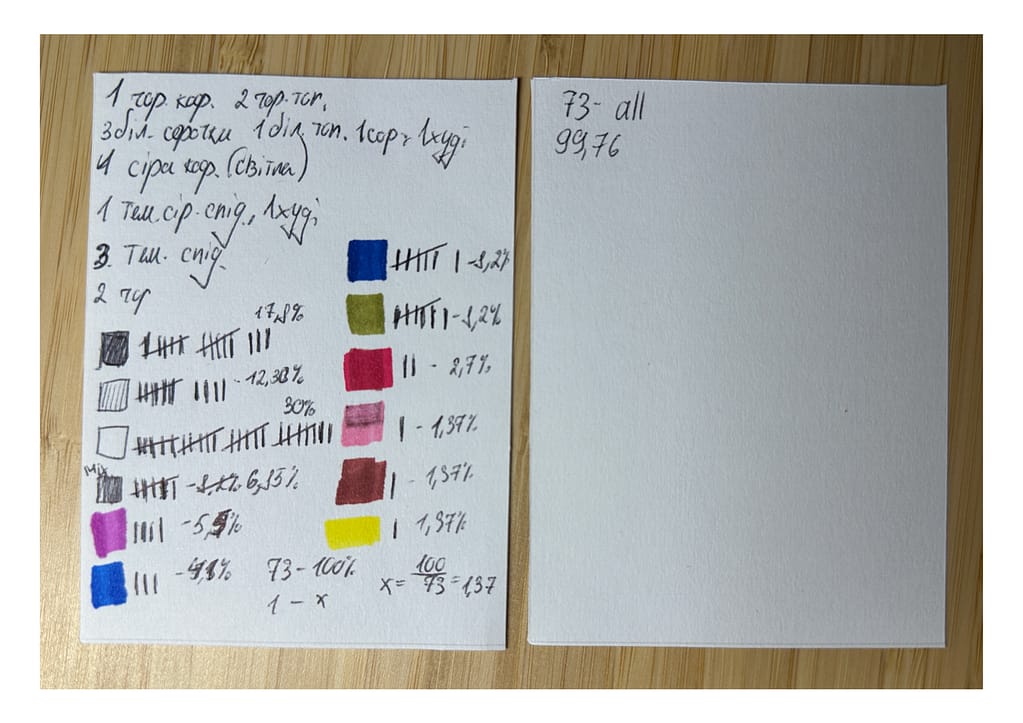 1 чор. коф. 2 чор. топ.
3 біл. сорочки 1 біл. топ. 1 сор. 1 худі
4 сіра коф. (світла)
1 тем. сір. спід., 1 худі
3. Тем. спід.
2 чор
17,8%
- 12,33%
30%
Mix - 6,85%
- 5,5%
- 4,1%
- 8,2%
- 8,2%
- 2,7%
- 1,37%
- 1,37%
1,37%
73 - 100%
1 - x
x = 100/73 = 1,37
73 - all
99,76